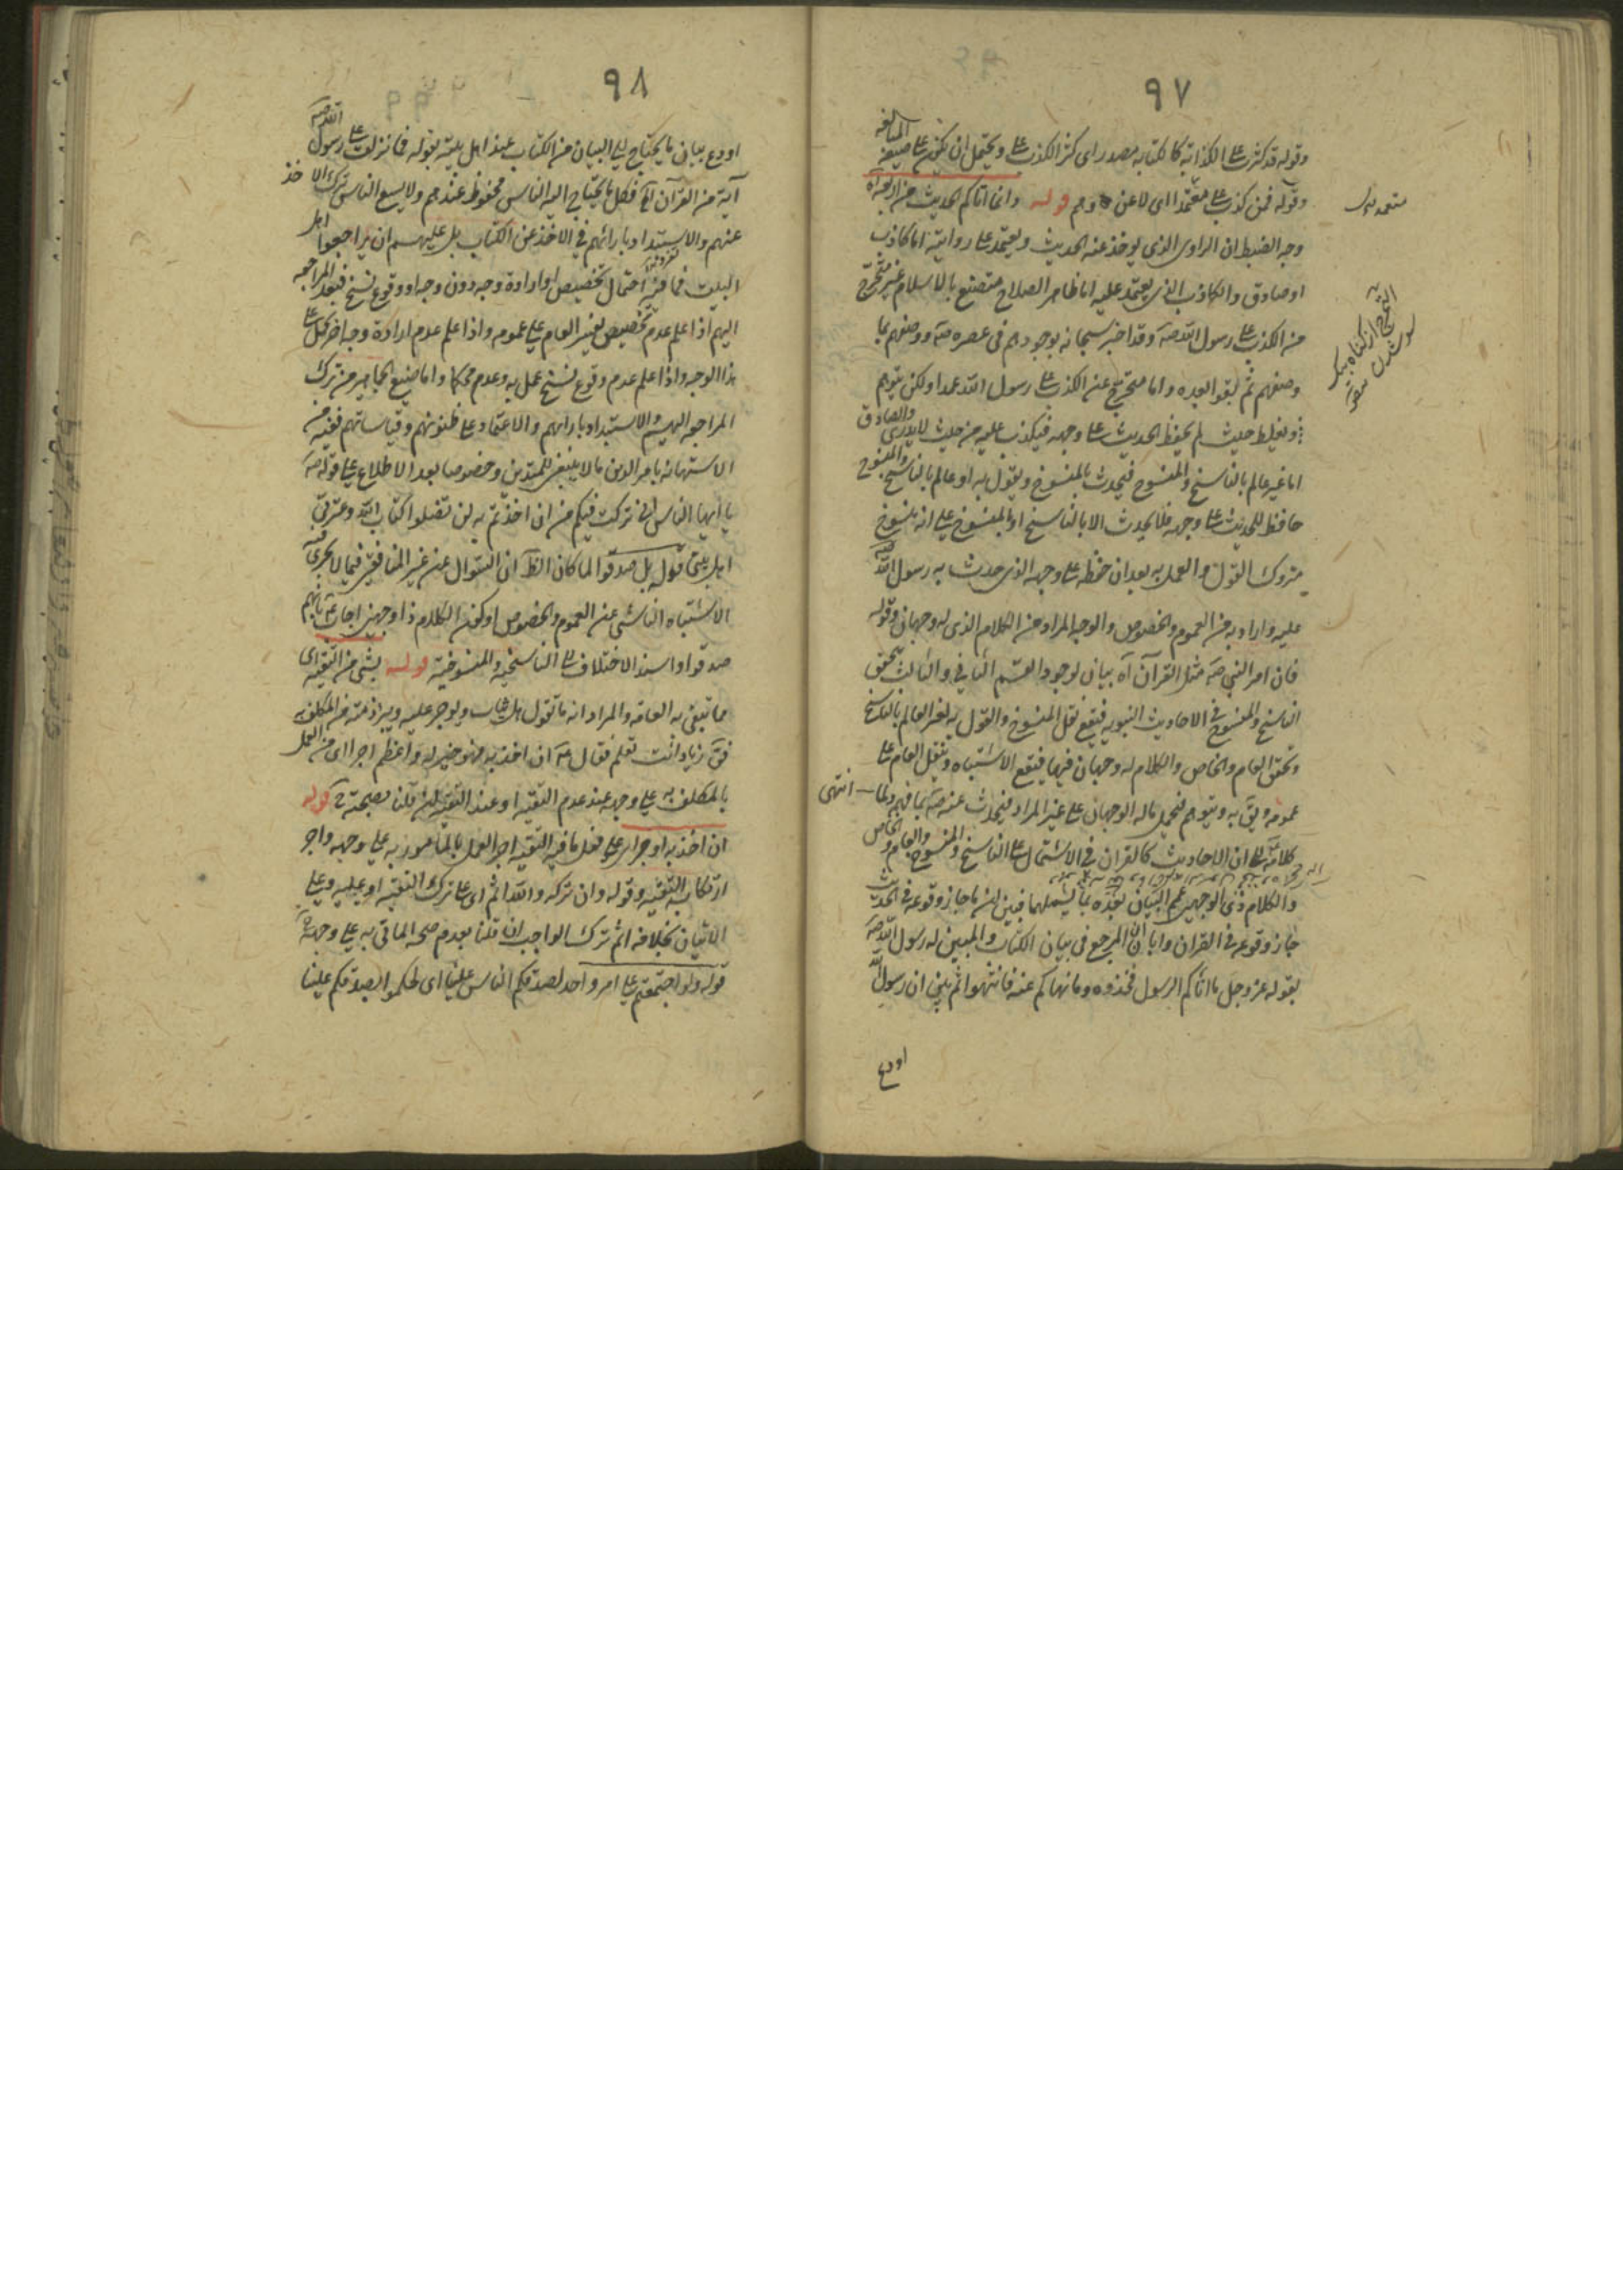 ٩٧
وقوله قد كثرت على الكذابة كالكتابة مصدر اى كثر الكذب على ويحتمل ان يكون على صيغة المبالغة
وقوله فمن كذب على متعمدا اى لا عن وهم قوله وانما اتاكم الحديث من اربعة آه
وجه الضبط ان الراوى الذى يوخذ عنه الحديث ويعتمد على روايته اما كاذب
او صادق والكاذب الذى يعتمد عليه اما ظاهر الصلاح متصنع بالاسلام غير متحرج
من الكذب على رسول الله صه وقد اخبر سبحانه بوجودهم فى عصره صه ووصفهم بما
وصفهم ثم بقوا بعده واما متحرج عن الكذب على رسول الله عمدا ولكن يتوهم
ويغلط حيث لم يحفظ الحديث على وجهه فيكذب عليه من حيث لا يدرى والصادق
اما غير عالم بالناسخ والمنسوخ فيحدث بالمنسوخ ويقول به او عالم بالناسخ والمنسوخ
حافظ للحديث على وجهه فلا يحدث الا بالناسخ او بالمنسوخ على انه منسوخ
متروك القول والعمل به بعد ان حفظه على وجهه الذى حدث به رسول الله صه
عليه واراد به من العموم والخصوص والوجه المراد من الكلام الذى له وجهان وقوله
فان امر النبى صه مثل القرآن آه بيان لوجود القسم الثانى والثالث بتحقق
الناسخ والمنسوخ فى الاحاديث النبويه فيقع نقل المنسوخ والقول به لغير العالم بالناسخ
وتحقق العام والخاص والكلام له وجهان فيها فيقع الاشتباه وينقل العام على
عمومه ويق به ويتوهم فيحمل ماله الوجهان على غير المراد فيحدث عنه صه بما فهم ولما انتهى
كلامه الى ان الاحاديث كالقران فى الاشتمال على الناسخ والمنسوخ والعام والخاص
والكلام ذى الوجهين عمم البيان بعده بما يشملهما فبين ان ما جاز وقوعه فى الحديث
جاز وقوعه فى القران وابان ان المرجع فى بيان الكتاب والمبين له رسول الله صه
بقوله عز وجل ما اتاكم الرسول فخذوه وما نهاكم عنه فانتهوا ثم بين ان رسول الله
اودع
٩٨
اودع بيان ما يحتاج الى البيان من الكتاب عند اهل بيته بقوله فما نزلت على رسول الله صه
آية من القرآن الخ فكل ما يحتاج اليه الناس محفوظ عندهم ولا يسع الناس ترك الاخذ
عنهم والاستبداد بارائهم فى الاخذ عن الكتاب بل عليهم ان يراجعوا اهل
البيت فما فيه احتمال تخصيص او ارادة وجه دون وجه او وقوع نسخ فبعد المراجعه
اليهم اذا علم عدم تخصيص يفسر العام على عمومه واذا علم عدم ارادة وجه اخر حمل على
هذا الوجه واذا علم عدم وقوع نسخ عمل به وعدم محكما واما صنيع الجماهير من ترك
المراجعه اليهم والاستبداد بارائهم والاعتماد على ظنونهم وقياساتهم ففيه من
الاستهانه بامر الدين ما لا ينبغى للمتدين وخصوصا بعد الاطلاع على قوله صه
يا ايها الناس انى تركت فيكم من ان اخذتم به لن تضلوا كتاب الله وعترتى
اهل بيتى قوله بل صدقوا لما كان الظ ان السؤال عن غير المنافقين فيما لا يجرى فيه
الاشتباه الناشى عن العموم والخصوص او كون الكلام ذا وجهين اجاب ع بانهم
صدقوا واسند الاختلاف الى الناسخيه والمنسوخيه قوله بشئ من التقيه اى
مما تبقى به العامه والمراد انه ما تقول هل يثاب ويوجر عليه ويبرأ ذمته من المكلف به
فق زياد انت تعلم فقال ع ان اخذ به فهو خير له واعظم اجرا اى من العمل
بالمكلف به على وجهه عند عدم التقيه او عند التقيه ان قلنا بصحته ح قوله
ان اخذ به اوجر اى على فعل ما فيه التقيه اجر العمل بالمأمور به على وجهه واجر
ارتكاب التقيه وقوله وان تركه والله اثم اى على ترك التقيه او عليه وعلى
الاتيان بخلافه اثم ترك الواجب ان قلنا بعدم صحه الماتى به على وجهه
قوله ولو اجتمعتم على امر واحد لصدقكم الناس علينا اى لحكموا بصدقكم علينا